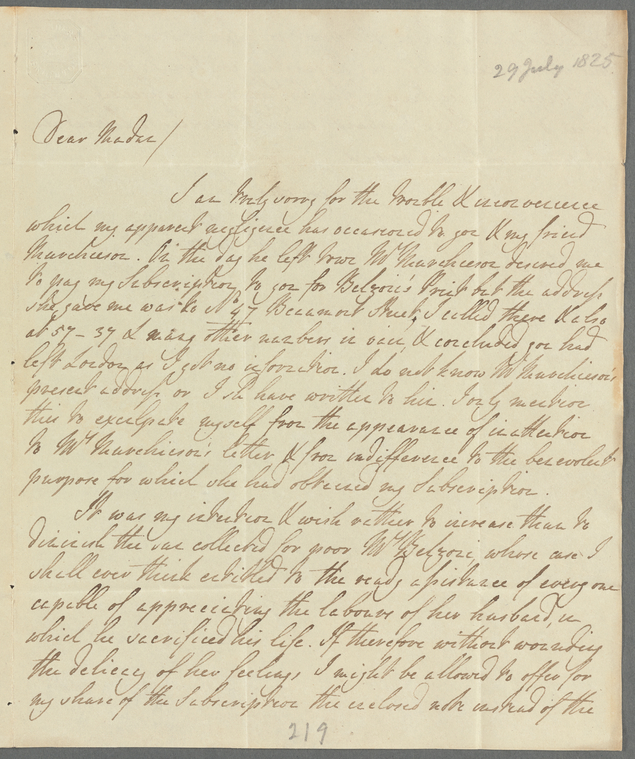 29 July 1825
Dear Madam/
I am truly sorry for the trouble & inconvenience
which my apparent negligence has occasioned to you & my friend
Murchison. On the day he left town Mrs Murchison desired me
to pay my Subscription to you for Belzoni's Print but the address
she gave me was to No 47 Beaumont Street, I called there & also
at 57 - 37 & many other numbers in vain, & concluded you had
left London as I got no information. I do not know Mr Murchison's
present address or I sh have written to him. I only mention
this to exculpate myself from the appearance of inattention
to Mrs Murchison's letter & from indifference to the benevolent
purpose for which she had obtained my Subscription.
It was my intention & wish rather to increase than to
diminish the sum collected for poor Mrs Belzoni, whose case I
shall ever think entitled to the ready assistance of every one
capable of appreciating the labours of her husband, in
which he sacrificed his life. If therefore without wounding
the delicacy of her feelings I might be allowed to offer for
my share of the Subscription the enclosed note instead of the
219